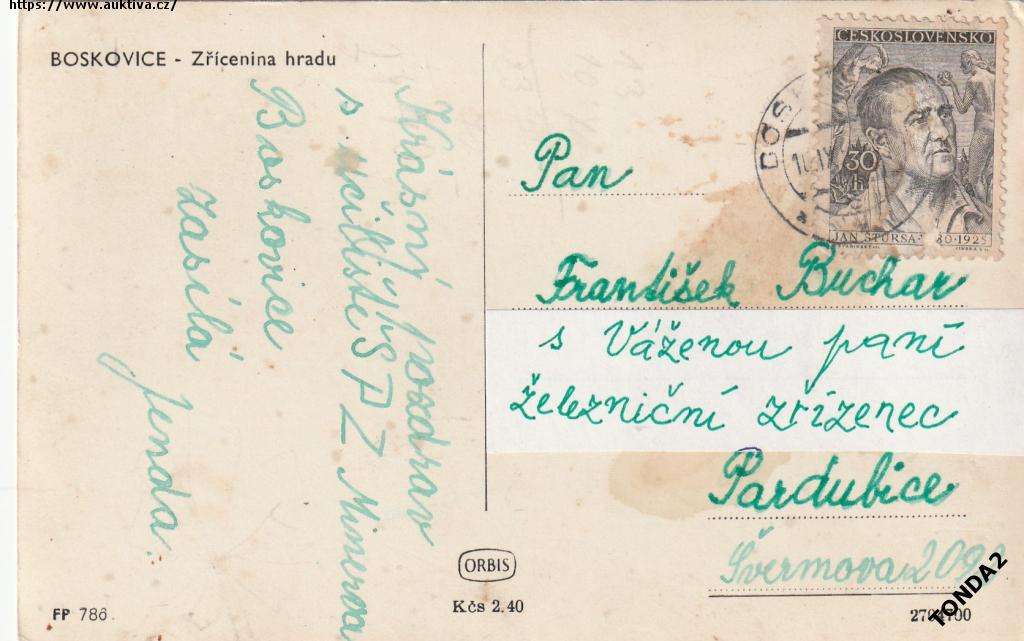 https://www.auktiva.cz/
BOSKOVICE - Zřícenina hradu
Krásný pozdrav
s učiliště SPZ Minerva
Boskovice
zasílá
Jenda.
ČESKOSLOVENSKO
30
h
JAN ŠTURSA
1925
BOSK
Pan
František Buchar
s Váženou paní
železniční zřízenec
Pardubice
Švermova 209
ORBIS
Kčs 2.40
FP 786
TONDA2